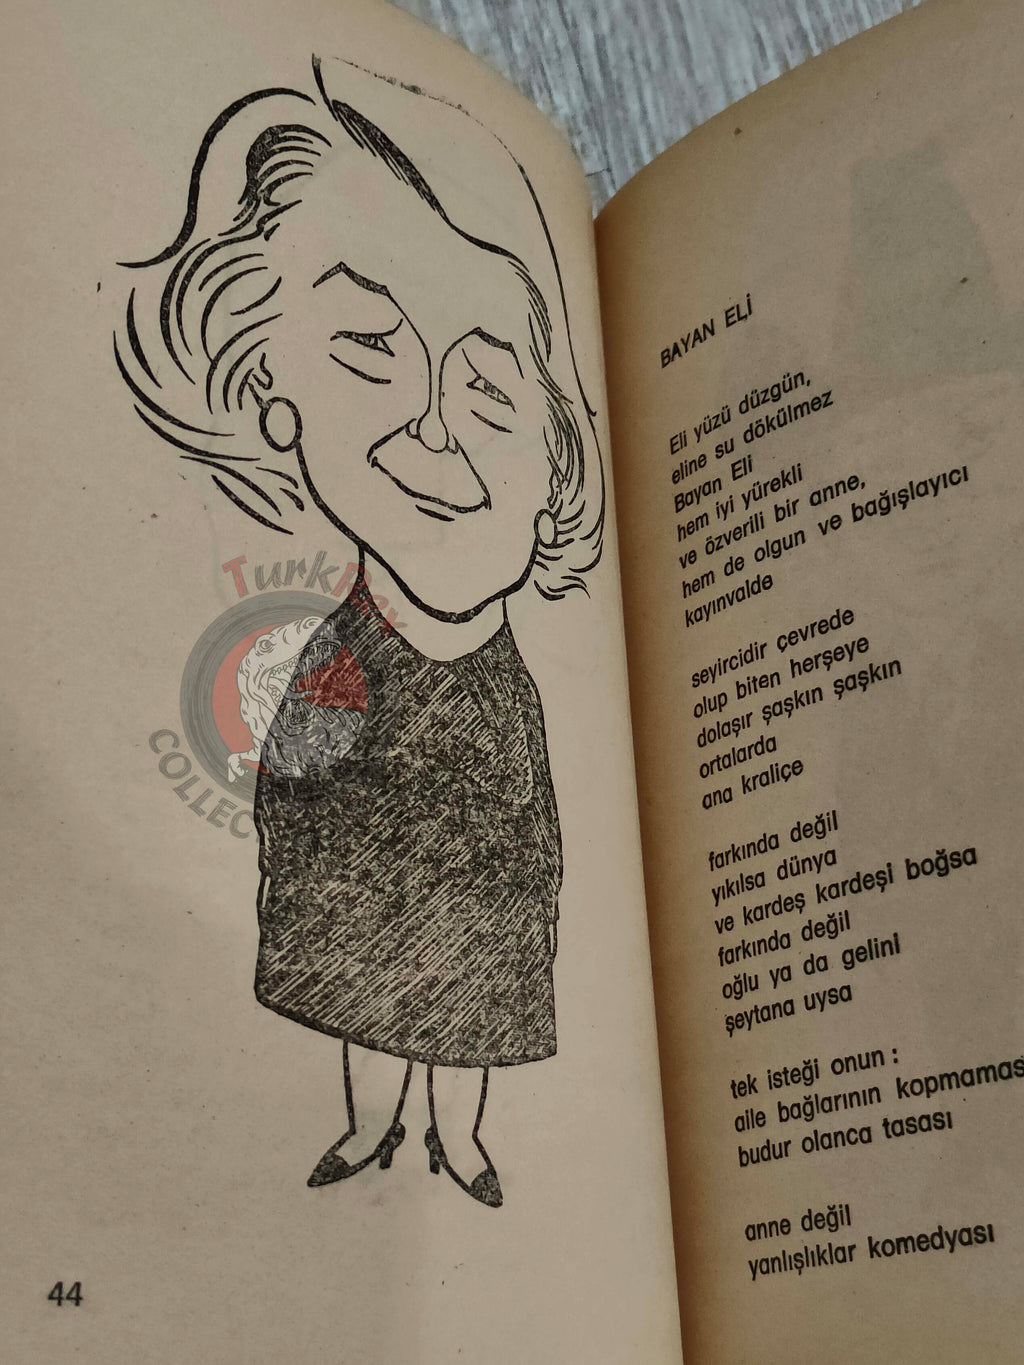 TurkRex
COLLEC
44
BAYAN ELİ
Eli yüzü düzgün,
eline su dökülmez
Bayan Eli
hem iyi yürekli
ve özverili bir anne,
hem de olgun ve bağışlayıcı
kayınvalde
seyircidir çevrede
olup biten herşeye
dolaşır şaşkın şaşkın
ortalarda
ana kraliçe
farkında değil
yıkılsa dünya
ve kardeş kardeşi boğsa
farkında değil
oğlu ya da gelini
şeytana uysa
tek isteği onun :
aile bağlarının kopmamas
budur olanca tasası
anne değil
yanlışlıklar komedyası